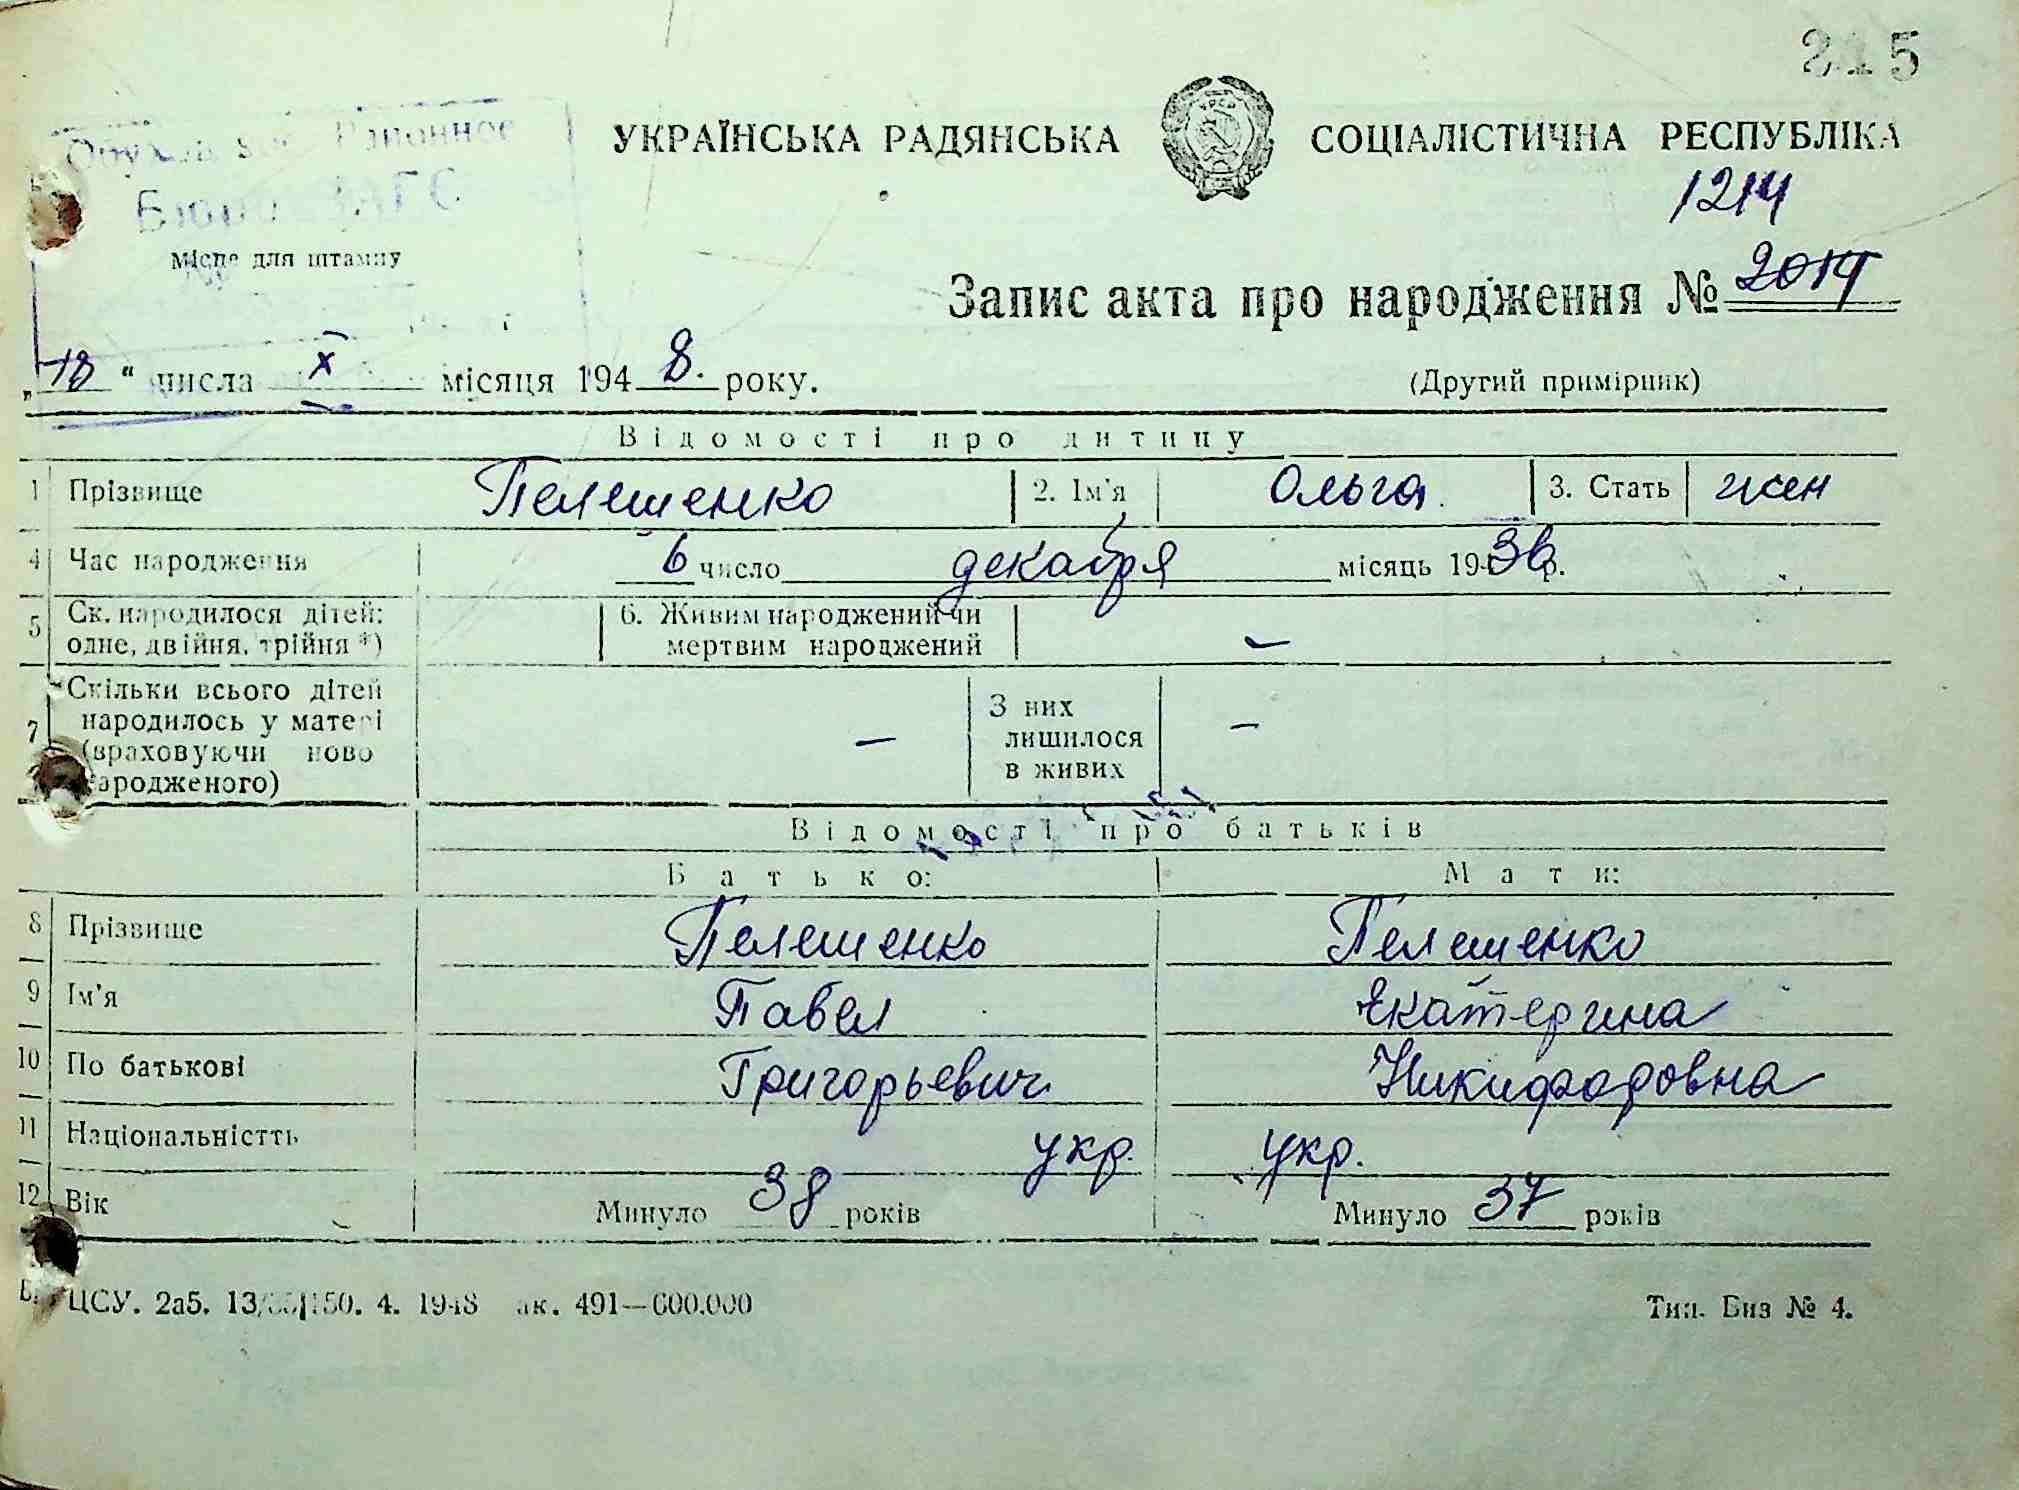 215
УКРАЇНСЬКА РАДЯНСЬКА СОЦІАЛІСТИЧНА РЕСПУБЛІКА
УРСР
Районное
Бюро ЗАГС
місце для штампу
1214
Запис акта про народження № 2014
„18“ числа X місяця 1948. року.
(Другий примірник)
Відомості про дитину
1 Прізвище Пелешенко 2. Ім'я Ольга. 3. Стать жен
4 Час народження 6 число декабря місяць 1936 р.
5 Ск. народилося дітей: одне, двійня, трійня *) 6. Живим народжений чи мертвим народжений –
7 Скільки всього дітей народилось у матері (враховуючи ново народженого) – З них лишилося в живих –
Відомості про батьків
Батько: Мати:
8 Прізвище Пелешенко Пелешенко
9 Ім'я Павел Екатерина
10 По батькові Григорьевич Никифоровна
11 Національністть укр. укр.
12 Вік Минуло 38 років Минуло 37 років
ЦСУ. 2а5. 4. 1948 491—600.000
Тип. Биз № 4.